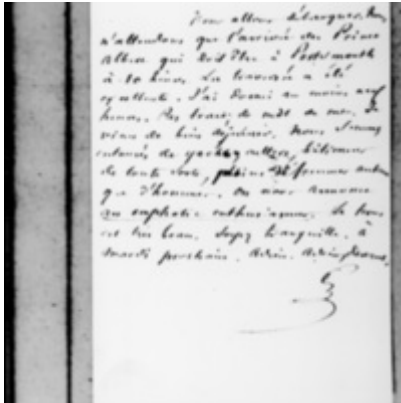 Nous allons débarquer. Nous
n'attendons que l'arrivée du Prince
Albert qui doit être à Portsmouth
à 10 heures. La traversée a été
excellente. J'ai dormi au moins neuf
heures. Pas trace de mal de mer. Je
viens de bien déjeuner. Nous sommes
entourés de yachts anglais, bâtiments
de toute sorte, pleins de femmes autant
que d'hommes. On nous annonce
un enthousiasme. Le temps
est très beau. Soyez tranquille. à
mardi prochain. Adieu. Adieu